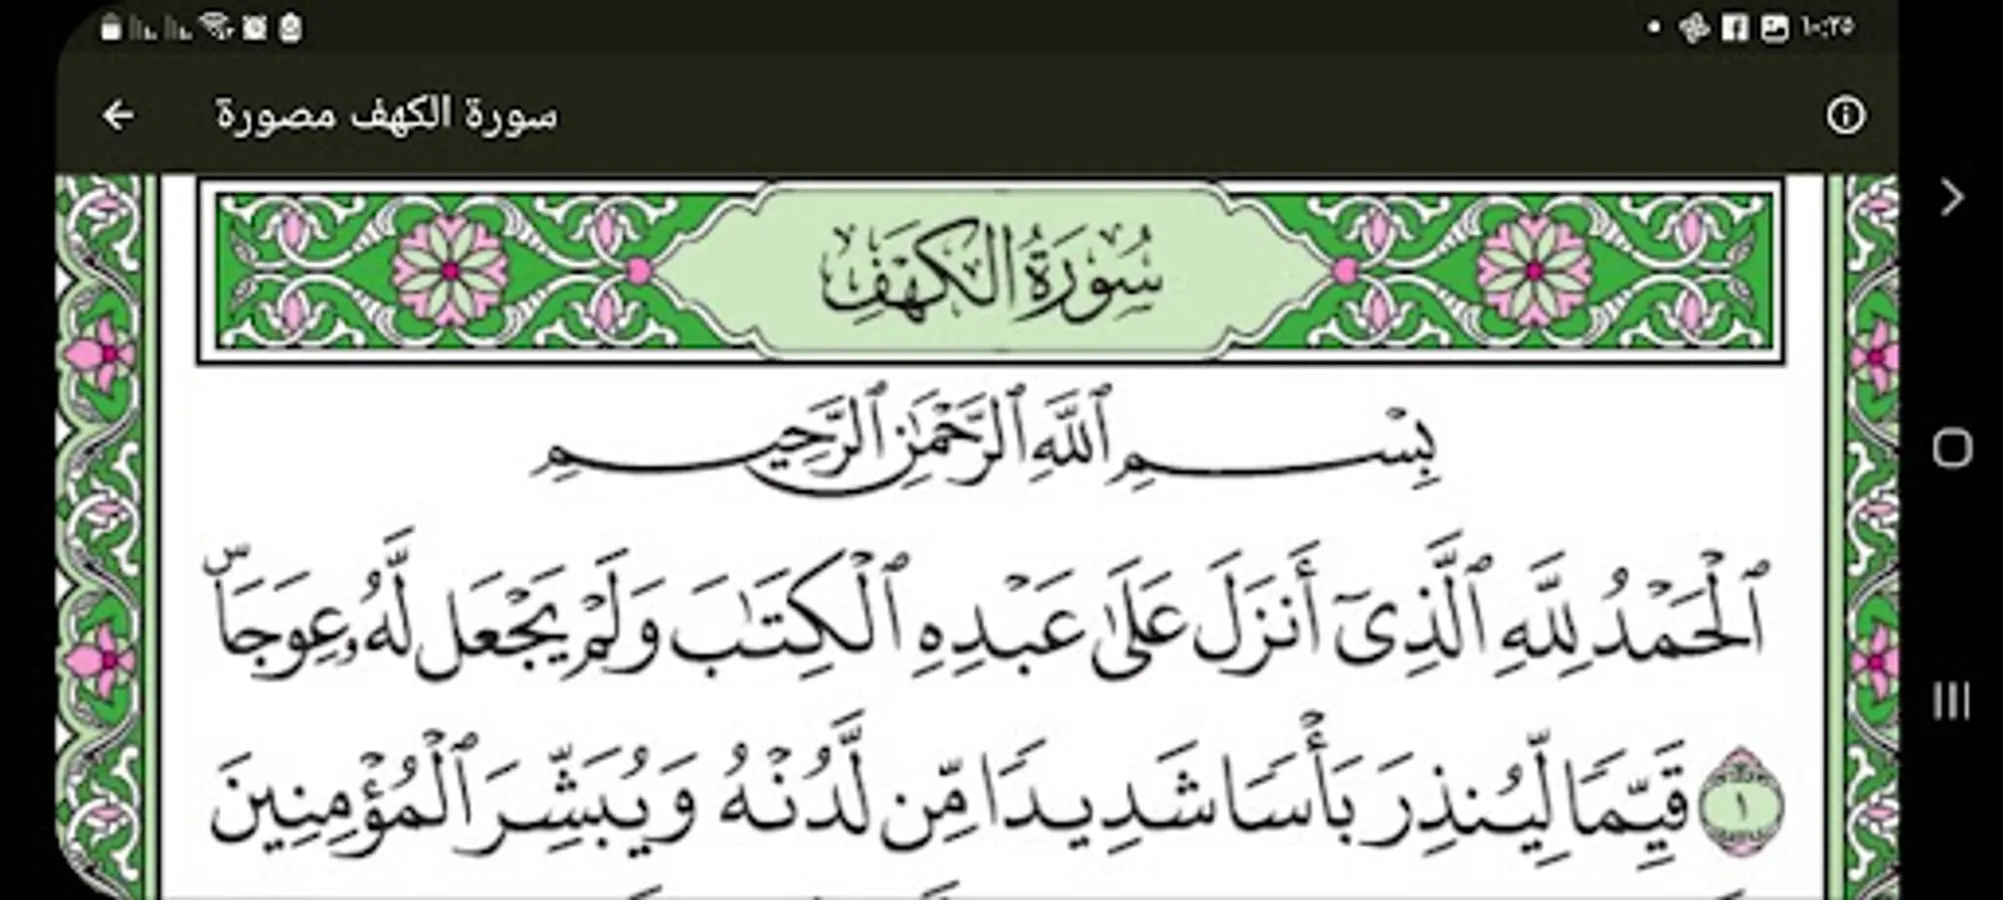 ١٠:٢٥
سورة الكهف مصورة
سُورَةُ الكَهْفِ
بِسْمِ ٱللَّهِ ٱلرَّحْمَٰنِ ٱلرَّحِيمِ
ٱلْحَمْدُ لِلَّهِ ٱلَّذِىٓ أَنزَلَ عَلَىٰ عَبْدِهِ ٱلْكِتَٰبَ وَلَمْ يَجْعَل لَّهُۥ عِوَجَاۜ
١ قَيِّمًا لِّيُنذِرَ بَأْسًا شَدِيدًا مِّن لَّدُنْهُ وَيُبَشِّرَ ٱلْمُؤْمِنِينَ